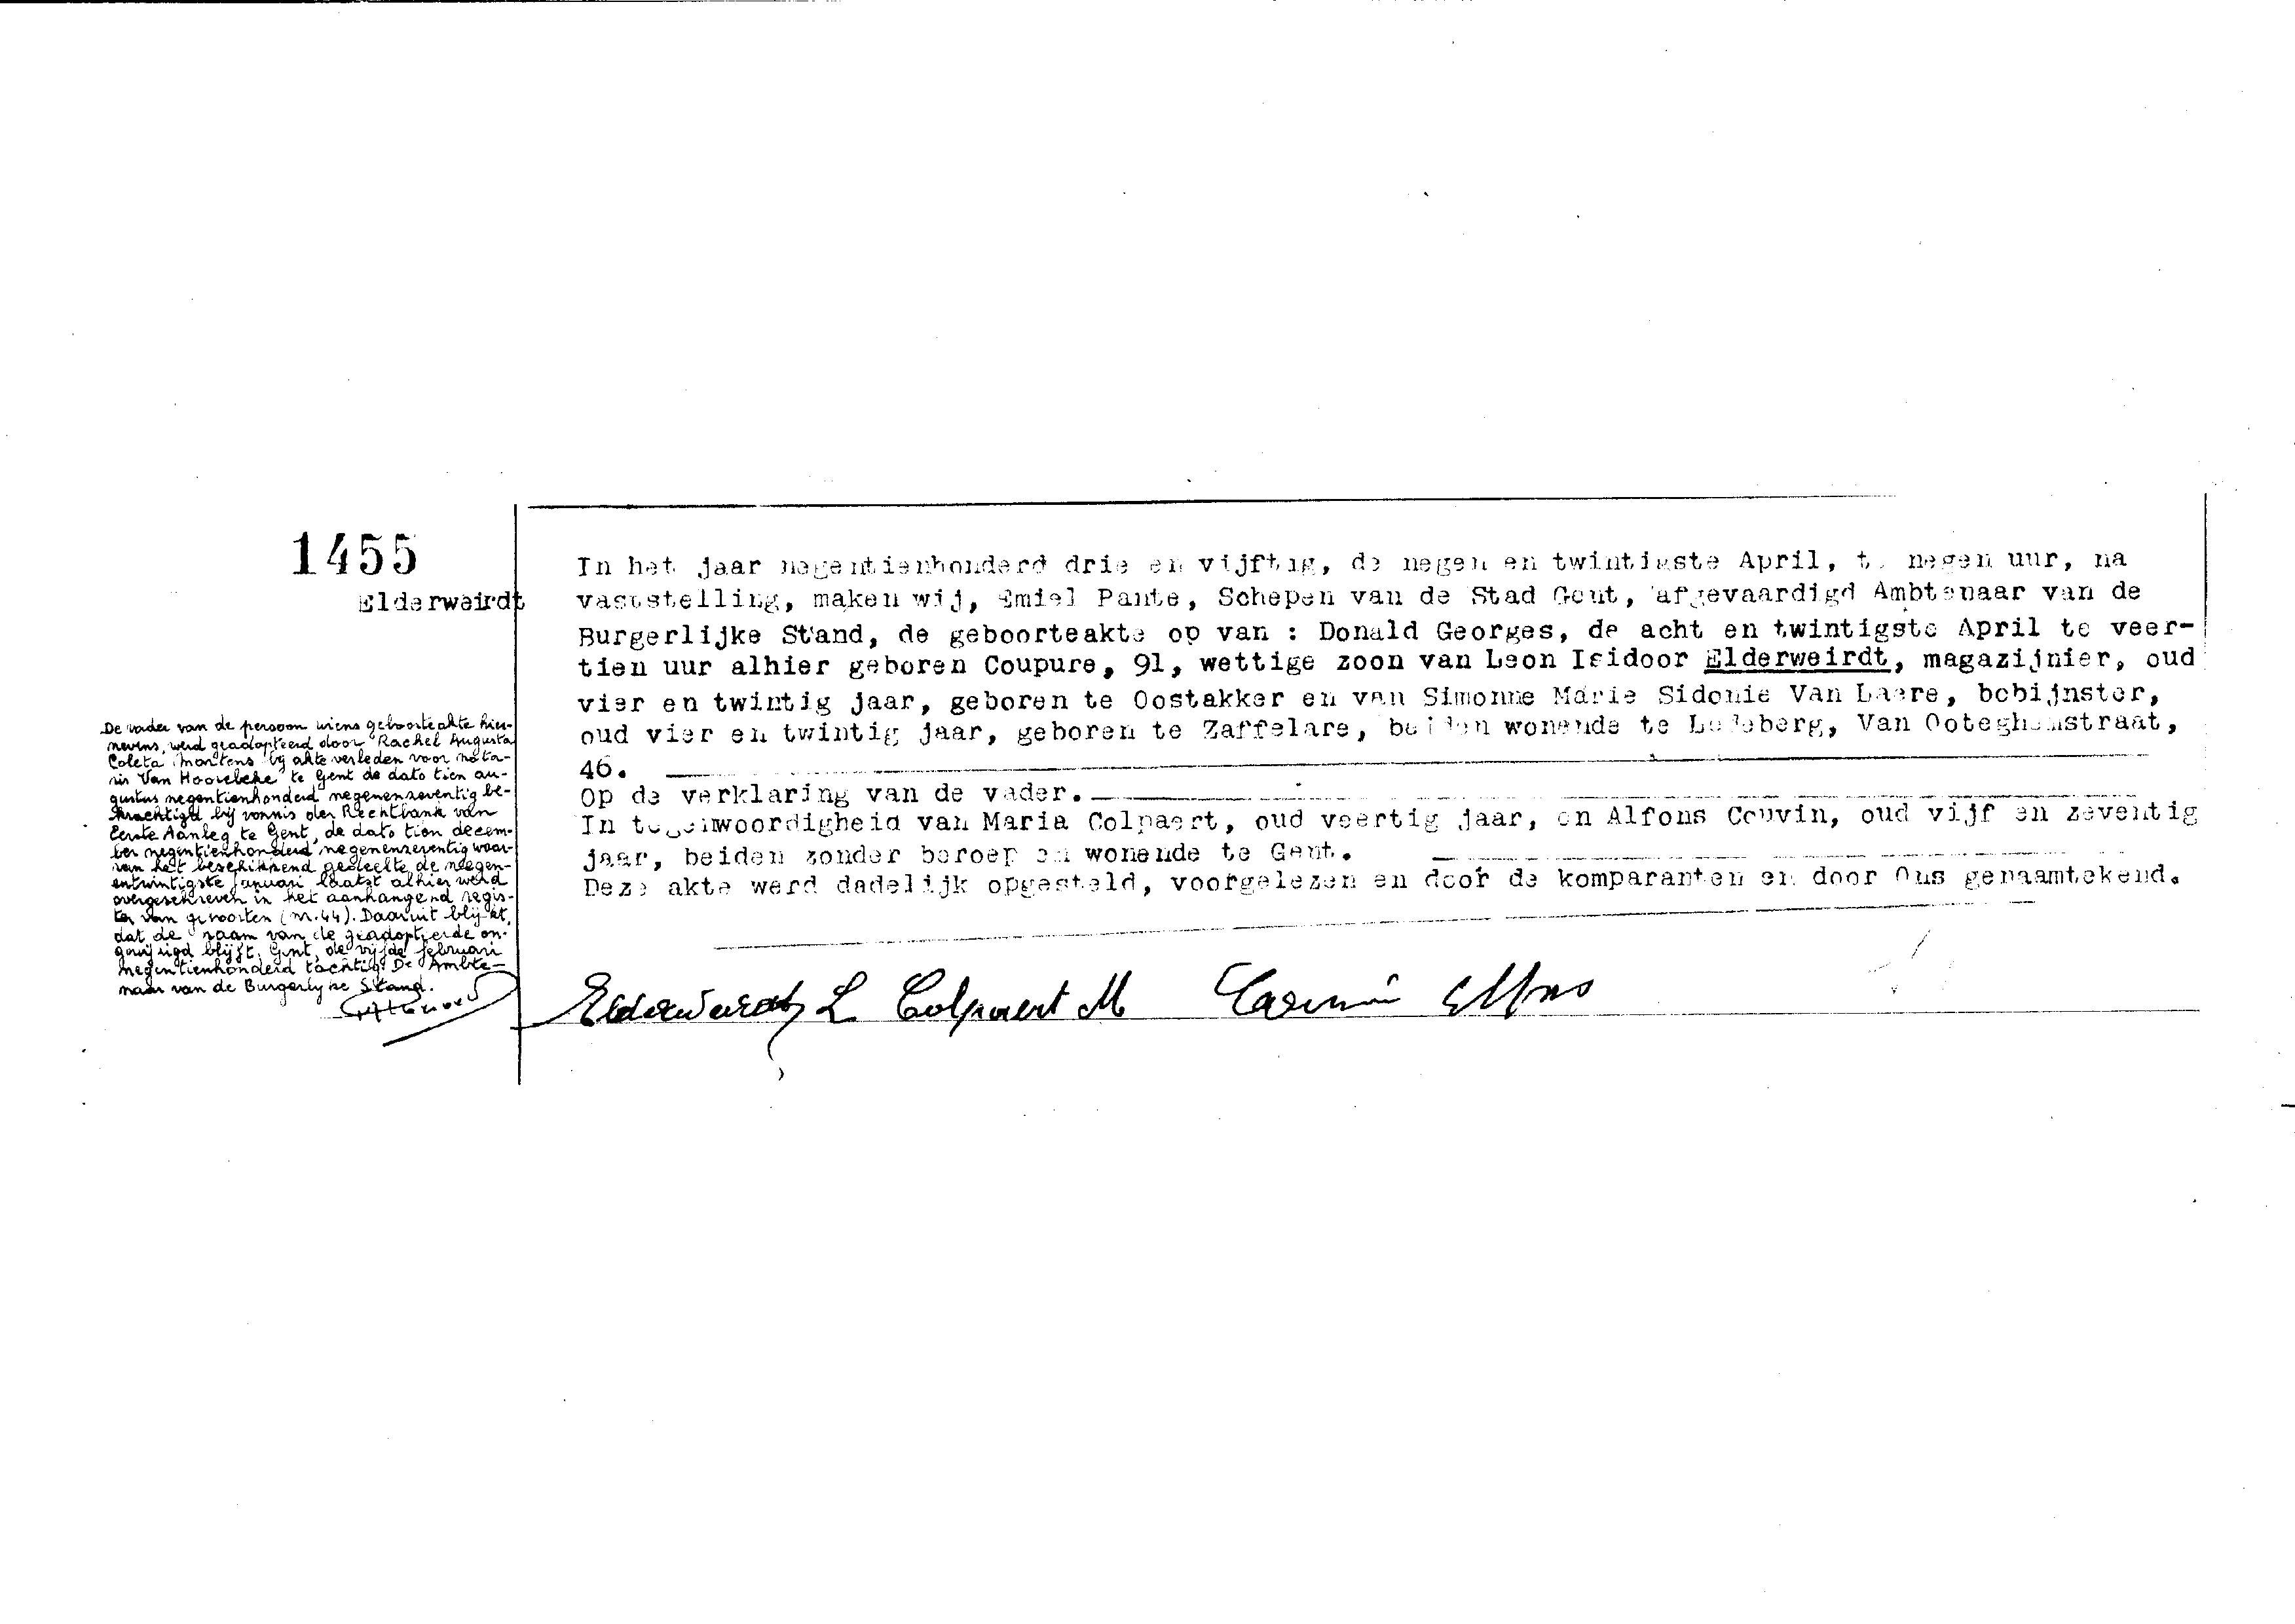 1455
Elderweirdt
In het jaar negentienhonderd drie en vijftig, de negen en twintigste April, te negen uur, na
vaststelling, maken wij, Emiel Pante, Schepen van de Stad Gent, afgevaardigd Ambtenaar van de
Burgerlijke Stand, de geboorteakte op van : Donald Georges, de acht en twintigste April te veer-
tien uur alhier geboren Coupure, 91, wettige zoon van Leon Isidoor Elderweirdt, magazijnier, oud
vier en twintig jaar, geboren te Oostakker en van Simonne Marie Sidonie Van Laere, bobijnster,
oud vier en twintig jaar, geboren te Zaffelare, beiden wonende te Ledeberg, Van Ooteghemstraat,
46.
Op de verklaring van de vader.
In tegenwoordigheid van Maria Colpaert, oud veertig jaar, en Alfons Couvin, oud vijf en zeventig
jaar, beiden zonder beroep en wonende te Gent.
Deze akte werd dadelijk opgesteld, voorgelezen en door de komparanten en door Ons genaamtekend.
De vader van de persoon wiens geboorteakte hier-
nevens, werd geadopteerd door Rachel Augusta
Coleta Martens bij akte verleden voor nota-
ris Van Hoorebeke te Gent de dato tien au-
gustus negentienhonderd negenenzeventig be-
krachtigd bij vonnis der Rechtbank van
Eerste Aanleg te Gent, de dato tien decem-
ber negentienhonderd negenenzeventig waar-
van het beschikkend gedeelte de negen-
entwintigste januari laatst alhier werd
overgeschreven in het aanhangend regis-
ter van geboorten (nr. 44). Daaruit blijkt,
dat de naam van de geadopteerde on-
gewijzigd blijft. Gent, de vijfde februari
negentienhonderd tachtig. De Ambte-
naar van de Burgerlijke Stand.
Elderweirdt L Colpaert M Alfons